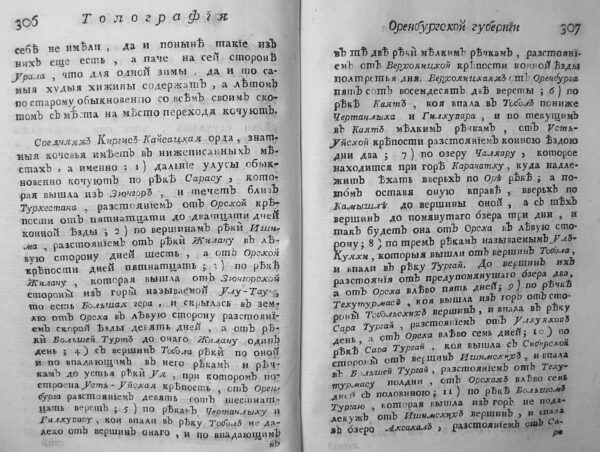 306 Топографїи
себѣ не имѣли, да и понынѣ такїе изъ
нихъ еще есть, а паче на сей сторонѣ
Урала, что для одной зимы, да и то са-
мыя худыя хижины содержатъ, а лѣтомъ
по старому обыкновенїю со всѣмъ своимъ ско-
томъ съ мѣста на мѣсто переходя кочуютъ.
Соедняяжъ Киргисъ Кайсацкая орда, знат-
ныя кочевья имѣетъ въ нижеписанныхъ мѣ-
стахъ, а именно: 1) дальнїе улусы обык-
новенно кочуютъ по рѣкѣ Сарасу, кото-
рая вышла изъ Зюнгорѣ, и течетъ близъ
Туркестана, разстоянїемъ отъ Орской крѣ-
пости отъ пятнатцати до дватцати дней
конной ѣзды; 2) по вершинамъ рѣки Иши-
ма, разстоянїемъ отъ рѣки Жилану въ лѣ-
вую сторону дней шесть, а отъ Орской
крѣпости дней пятнатцать; 3) по рѣкѣ
Жилану, которая вышла отъ Зюнгорской
стороны изъ горы называемой Улу-Тау,
то есть Большая гора, и скрылась въ зем-
лю отъ Орска въ лѣвую сторону разстоянї-
емъ скорой ѣзды десять дней, а отъ рѣ-
ки Большей Туртъ до онаго Жилану одинъ
день; 4) съ вершинъ Тобола рѣки по оной
и по впадающимъ въ него рѣкамъ и рѣч-
камъ до устья рѣки Уя, при которомъ по-
строена Усть-Уйская крѣпость, отъ Орен-
бурга разстоянїемъ девять сотъ шестнат-
цать верстъ; 5) по рѣкамъ Чертанлыку и
Гилкупару, кои впали въ рѣку Тоболъ не да-
леко отъ вершинъ онаго, и по впадающимъ
въ
Оренбургской губернїи 307
въ тѣ двѣ рѣки мѣлкимъ рѣчкамъ, разстоянї-
емъ отъ Верхояицкой крѣпости конной ѣзды
полтретья дня. Верхояицкаяжъ отъ Оренбурга
пять сотъ восемдесятъ двѣ версты; 6) по
рѣкѣ Каятъ, коя впала въ Тоболъ пониже
Чертанлыка и Гилкупара, и по текущимъ
въ Каятъ мѣлкимъ рѣчкамъ, отъ Усть-
Уйской крѣпости разстоянїемъ конною ѣздою
дни два; 7) по озеру Чалкару, которое
находится при горѣ Карачатку, куда надле-
житъ ѣхать вверьхъ по Орѣ рѣкѣ; а по-
томъ оставя оную вправѣ, вверьхъ по
Камышлѣ до вершины оной, а съ тѣхъ
вершинъ до помянутаго озера три дни, и
такъ будетъ она отъ Орска въ лѣвую сто-
рону; 8) по тремъ рѣкамъ называемымъ Улъ-
Куляхи, которыя вышли отъ вершинъ Тобола,
и впали въ рѣку Тургай. До вершинъ ихъ
разстоянїя отъ предупомянутаго озера два,
а отъ Орска влѣво пять дней; 9) по рѣчкѣ
Техутурмасъ, коя вышла изъ горъ отъ сто-
роны Тобольскихъ вершинъ, и впала въ рѣку
Сара Тургай, разстоянїемъ отъ Улкуяховъ
день, а отъ Орска влѣво семь дней; 10) по
рѣкѣ Сара Тургай, коя вышла съ Сибирской
стороны отъ вершинъ Ишимскихъ, и впала
въ Большей Тургай, разстоянїемъ отъ Теху-
турмасу полдни, отъ Орскажъ влѣво семь
дней съ половиною; 11) по рѣкѣ Большомъ
Тургаю, которая вышла изъ горъ не пода-
лекужъ отъ Ишимскихъ вершинъ, и впала
въ озеро Аксакалъ, разстоянїемъ отъ Са-
ра